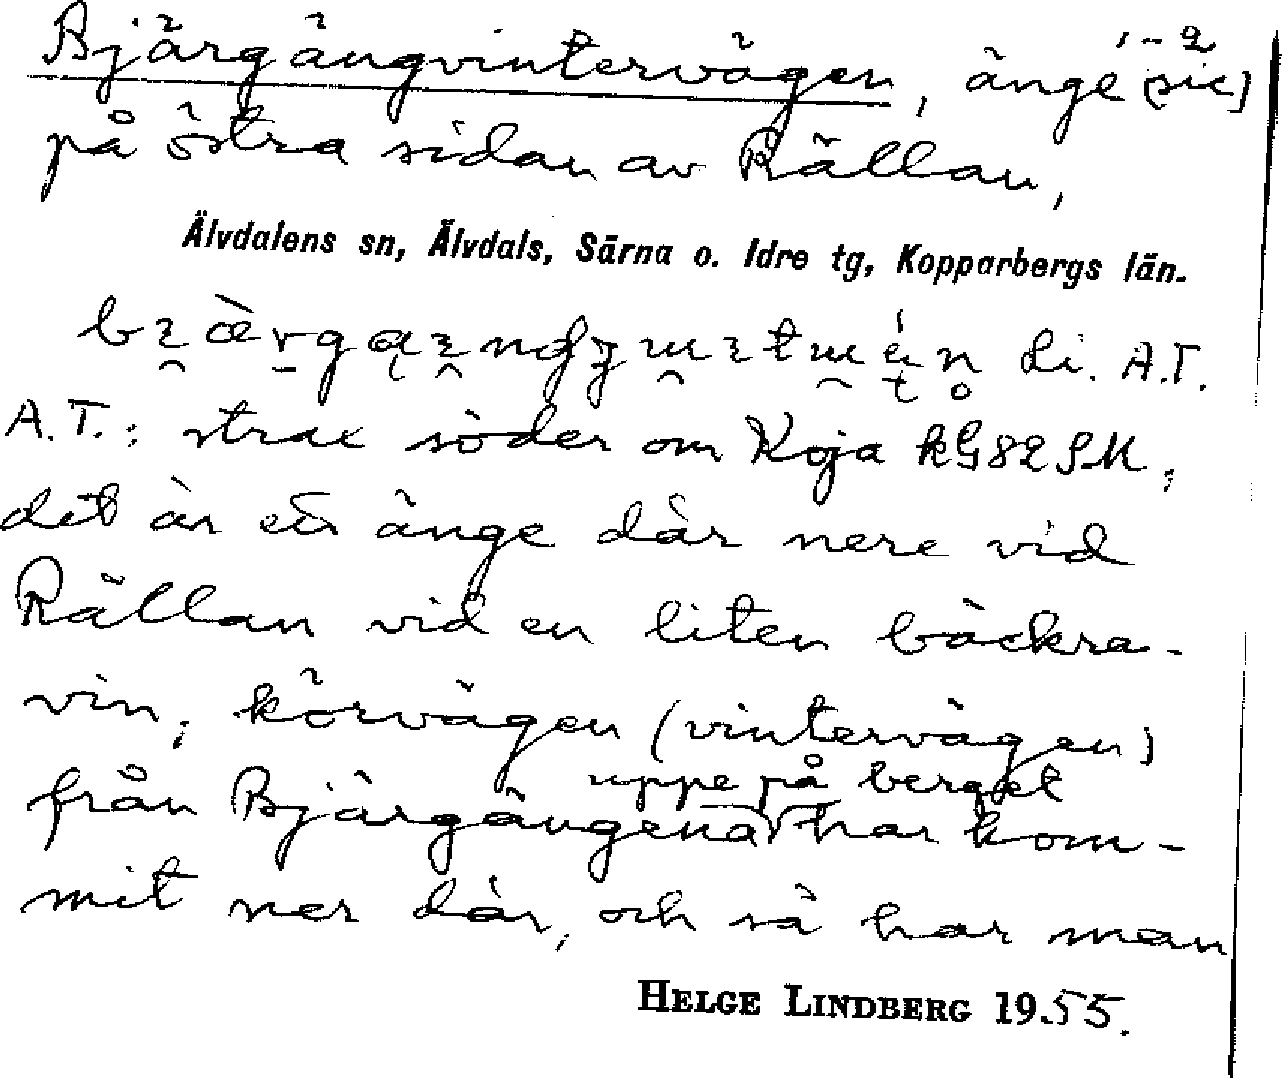 Bjärgängvintervägen, änge (sic) 1-2
på östra sidan av Rällan,
Älvdalens sn, Älvdals, Särna o. Idre tg, Kopparbergs län.
di. A.T.
A.T.: strax söder om Koja RG82SM;
det är en änge där nere vid
Rällan vid en liten bäckra-
vin; körvägen (vintervägen)
uppe på berget
från Bjärgängena har kom-
mit ner där, och så har man
HELGE LINDBERG 1955.